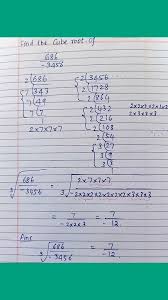 Find the Cube root of
686
-3456
2 | 686
7 | 343
7 | 49
7 | 7
1
2x7x7x7
2 | 3456
2 | 1728
2 | 864
2 | 432
2 | 216
2 | 108
2 | 54
3 | 27
3 | 9
3
2x2x2x2x2x2
2x3x3x3
3√686/-3456 = 3√2x7x7x7/-2x2x2x2x2x2x2x3x3x3
= 7/-2x2x3 = 7/-12
Ans
3√686/-3456 = 7/-12